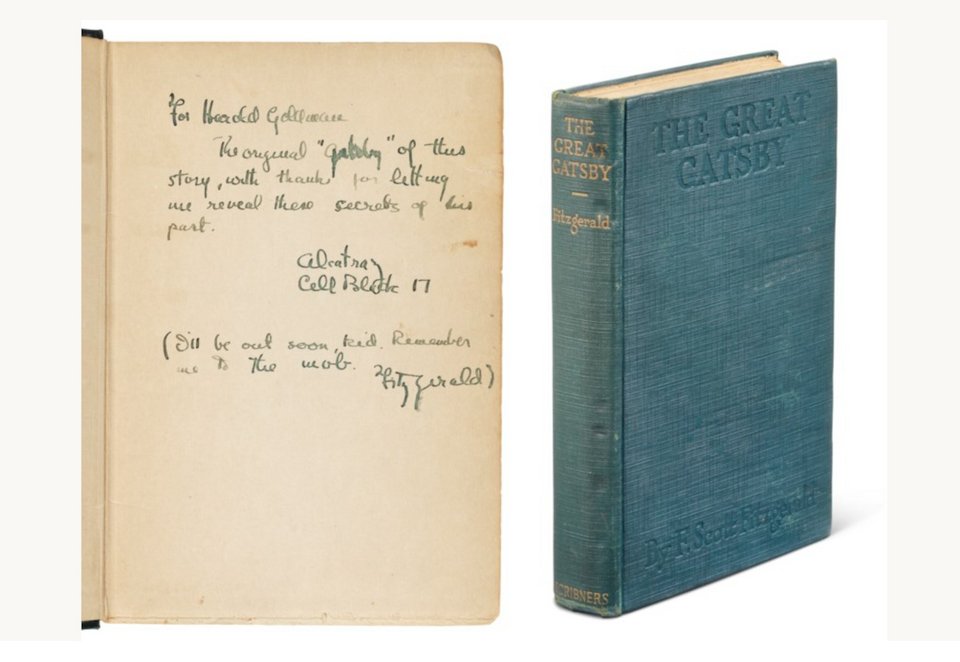 For Harold Goldman
The original "Gatsby" of this
story, with thanks for letting
me reveal these secrets of his
past.
Alcatraz
Cell Block 17
(I'll be out soon, kid. Remember
me to the mob. Fitzgerald)
THE
GREAT
GATSBY
Fitzgerald
SCRIBNERS
THE GREAT
GATSBY
By F. Scott Fitzgerald